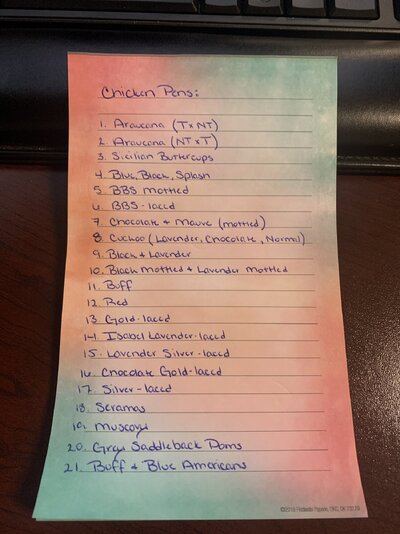 Chicken Pens:
1. Araucana (T x NT)
2. Araucana (NT x T)
3. Sicilian Buttercups
4. Blue, Black, Splash
5. BBS Mottled
6. BBS-laced
7. Chocolate + Mauve (mottled)
8. Cuckoo (Lavender, Chocolate, Normal)
9. Black + Lavender
10. Black Mottled + Lavender Mottled
11. Buff
12. Red
13. Gold-laced
14. Isabel Lavender-laced
15. Lavender Silver-laced
16. Chocolate Gold-laced
17. Silver-laced
18. Seramas
19. Muscovy
20. Grey Saddleback Poms
21. Buff + Blue Americans